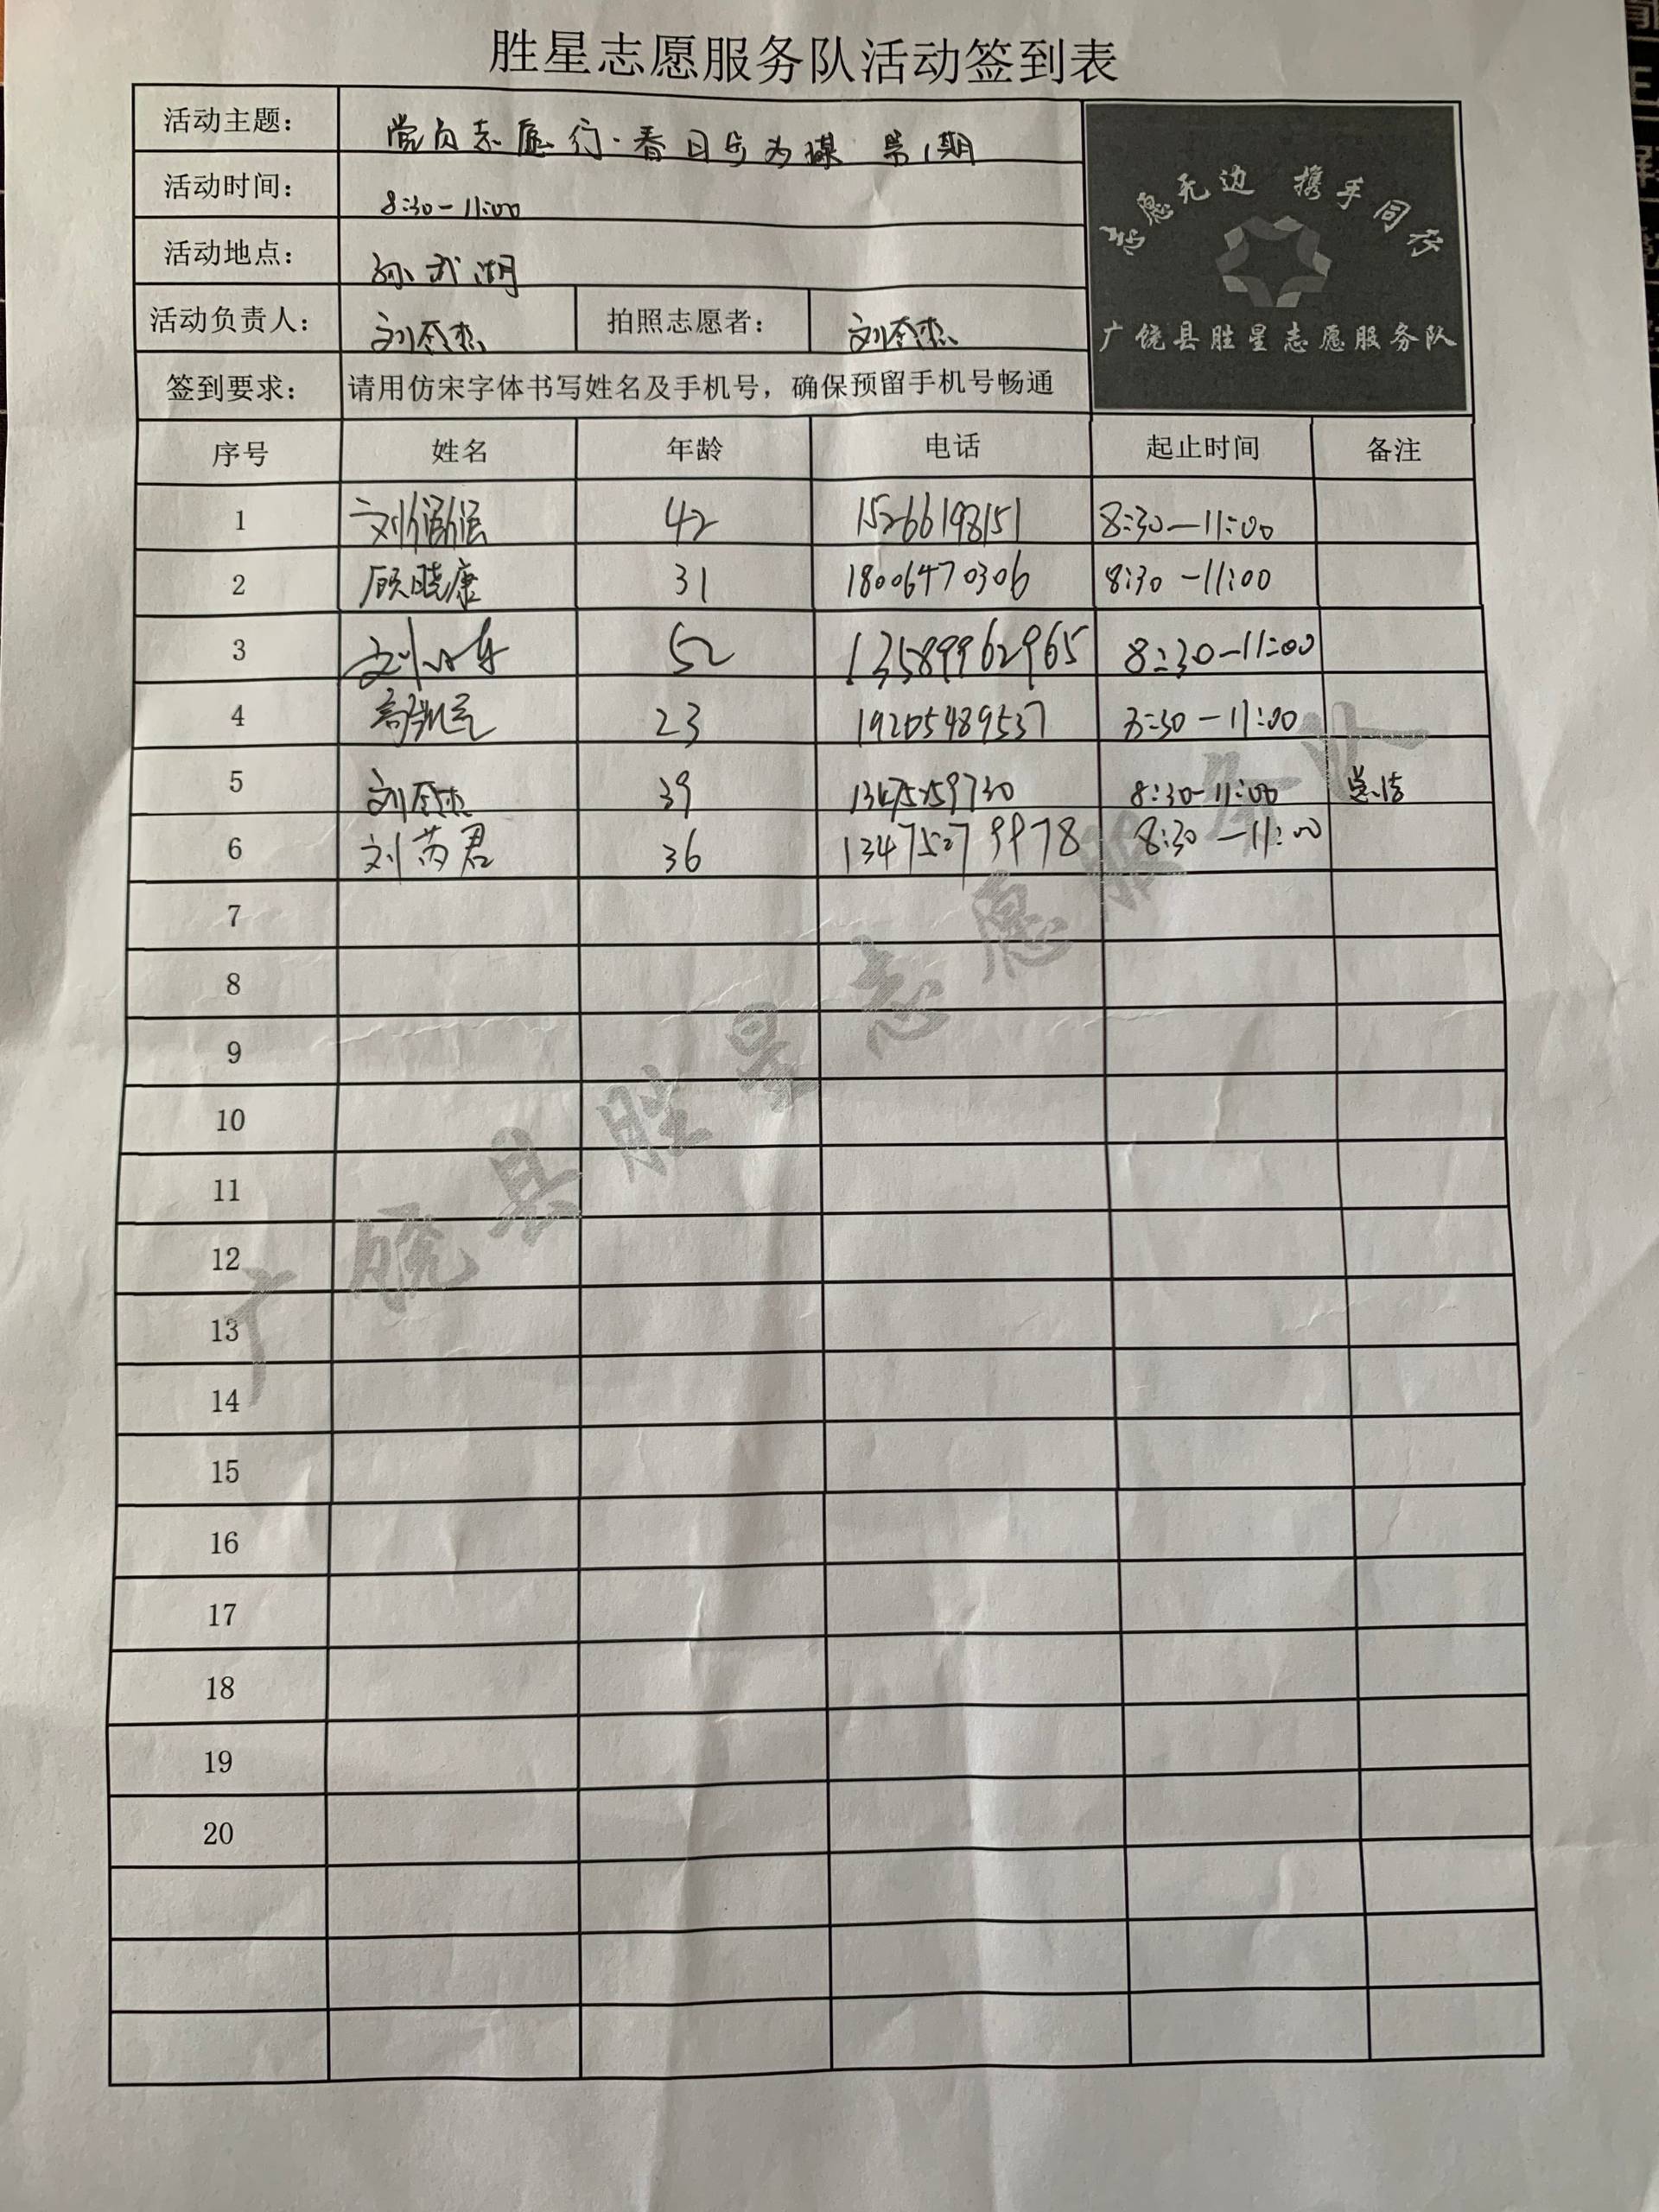 胜星志愿服务队活动签到表
活动主题： 党员志愿行·春日步为媒 第1期
活动时间： 8:30-11:00
活动地点： 孙武湖
志愿无边 携手同行
广饶县胜星志愿服务队
活动负责人： 刘冬杰 拍照志愿者： 刘冬杰
签到要求： 请用仿宋字体书写姓名及手机号，确保预留手机号畅通
序号 姓名 年龄 电话 起止时间 备注
1 刘 42 15266198151 8:30-11:00
2 顾晓康 31 18006470306 8:30-11:00
3 刘 52 13589962965 8:30-11:00
4 23 19205489537 8:30-11:00
5 刘冬杰 39 8:30-11:00 总结
6 刘芮君 36 13475279978 8:30-11:00
7
8
9
10
11
12
13
14
15
16
17
18
19
20
广饶县胜星志愿服务队